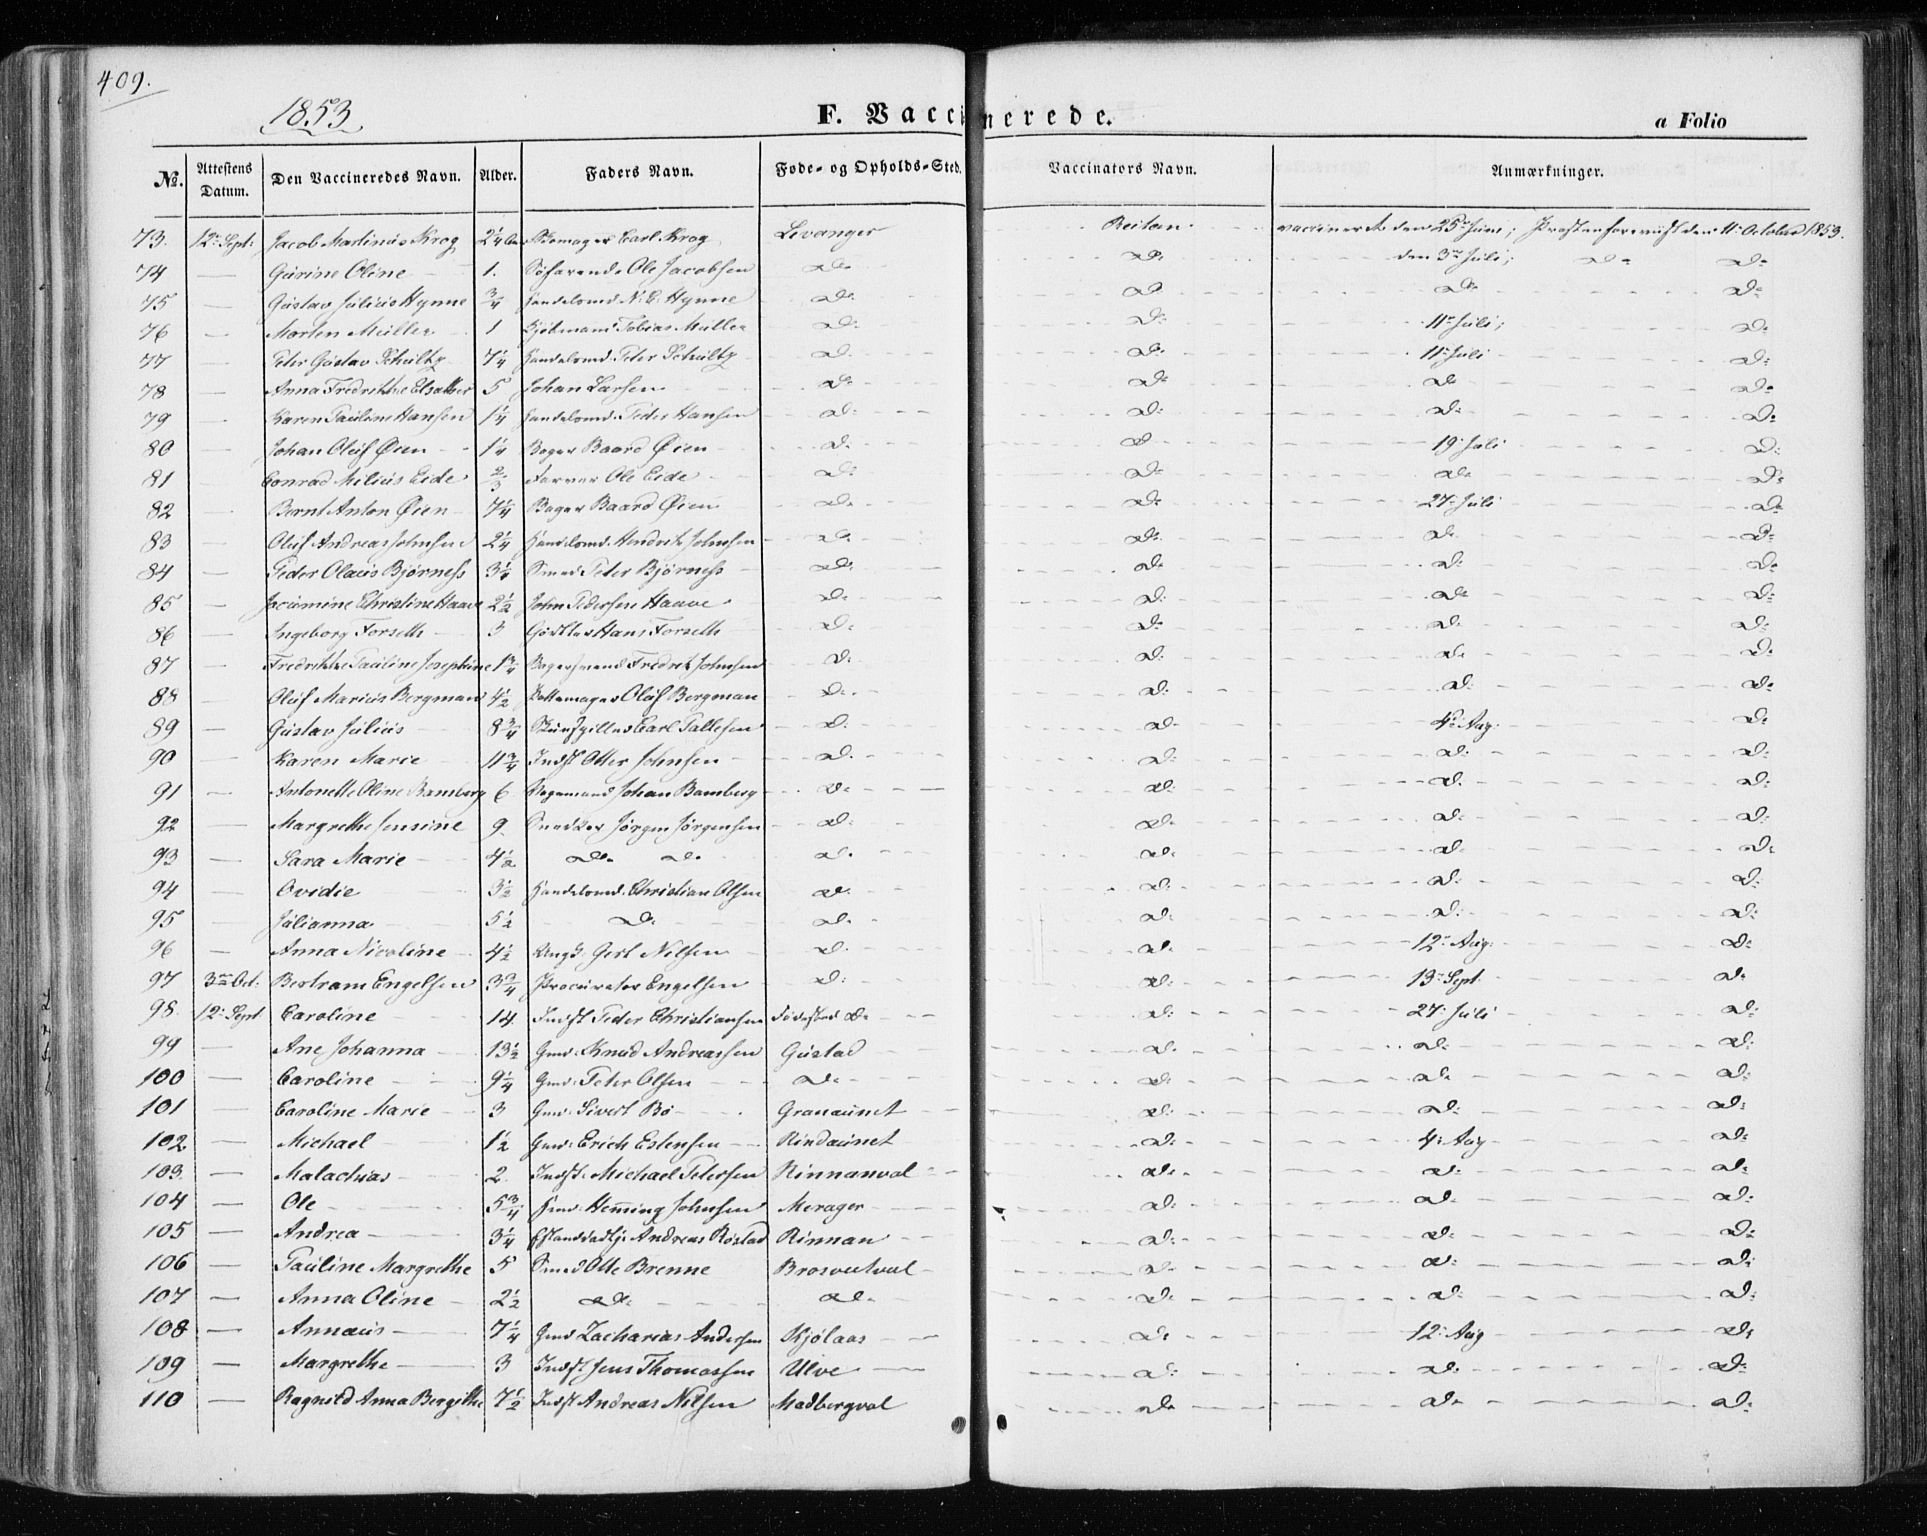 409.
1853
F. Vaccinerede.
a Folio
No. Attestens Datum. Den Vaccineredes Navn. Alder. Faders Navn. Føde- og Opholds-Sted. Vaccinators Navn. Anmærkninger.
73. 12te Sept: Jacob Martinus Krog 2 1/4 Skomager Carl Krog Levanger Reitan vaccineret den 25de Juni; den 11te October 1853.
74 — Gurine Oline 1. Søfarende Ole Jacobsen do do den 3die Juli; do do
75 — Gustav Julius Hynne 3/4 Handelsmd. N. E. Hynne do do do do
76 — Morten Müller 1 Kjøbmand Tobias Müller do do 11te Juli; do
77 — Peter Gustav Schultz 7 1/4 Handelsmd. Peter Schultz do do 11te Juli do
78 — Anna Fredrikke Elsabet 5 Johan Larsen do do do do
79 — Karen Pauline Hansen 1 1/4 Handelsmd. Peder Hansen do do do do
80 — Johan Oluf Øien 1 1/4 Bager Baard Øien do do 19 Juli do
81 — Conrad Milius Eide 2/3 Farver Ole Eide do do do do
82 — Bernt Anton Øien 7 1/4 Bager Baard Øien do do 27 Juli do
83 — Oluf Andreas Johnsen 2 1/4 Handelsmd. Hendrik Johnsen do do do do
84 — Peder Olaus Bjørness 3 1/4 Smed Peter Bjørness do do do do
85 — Jacomine Christine Haave 2 1/2 John Pedersen Haave do do do do
86 — Ingeborg Forseth 3 Gørtler Hans Forseth do do do do
87 — Fredrikke Pauline Josephine 1 3/4 Bagersvend Fredrik Johnsen do do do do
88 — Oluf Marius Bergman 4 1/2 Pottemager Oluf Bergman do do do do
89 — Gustav Julius 8 3/4 Carl Pallesen do do 4de Aug. do
90 — Karen Marie 11 3/4 Indst Otter Johnsen do do do do
91 — Antonette Oline Bamberg 6 Vognmand Johan Bamberg do do do do
92 — Margrethe Jensine 9 Snedker Jørgen Jørgensen do do do do
93 — Sara Marie 4 1/2 do do do do do do
94 — Ovidie 3 1/2 Handelsmd. Christian Olsen do do do do
95 — Julianna 5 1/2 do do do do do
96 — Anna Nicoline 4 1/2 Gert Nilsen do do 12te Aug. do
97 3die Oct: Bertram Engelsen 3 3/4 Procurator Engelsen do do 13de Sept. do
98. 12te Sept Caroline 14. Indst Peder Christiansen Fødested do do 27 Juli do
99 — Ane Johanna 13 1/2 Gmd. Knud Andreassen Gustad do do do
100 — Caroline 9 1/4 Gmd. Peter Olsen do do do do
101 — Caroline Marie 3 Gmd. Sivert Bö Granaunet do do do
102 — Michael 1 1/2 Gmd. Erich Estensen Rindaunet do 4de Aug do
103. — Malachias 2. Indst. Michael Petersen Rinnanval do do do
104 — Ole 5 3/4 Gmd. Heming Johnsen Merager do do do
105 — Andrea 3 1/4 Andreas Røstad Rinnan do do do
106 — Pauline Margrethe 5 Smed Otte Brenne do do do
107 — Anna Oline 2 1/2 do do do do do
108 — Annaus 7 1/4 Gmd Zacharias Andersen Kjølaas do 12te Aug do
109 — Margrethe 3 Indst Jens Thomassen Ulve do do do
110 — Ragnild Anna Bergithe 7 1/2 Indst Andreas Nilsen Madbergval do do do